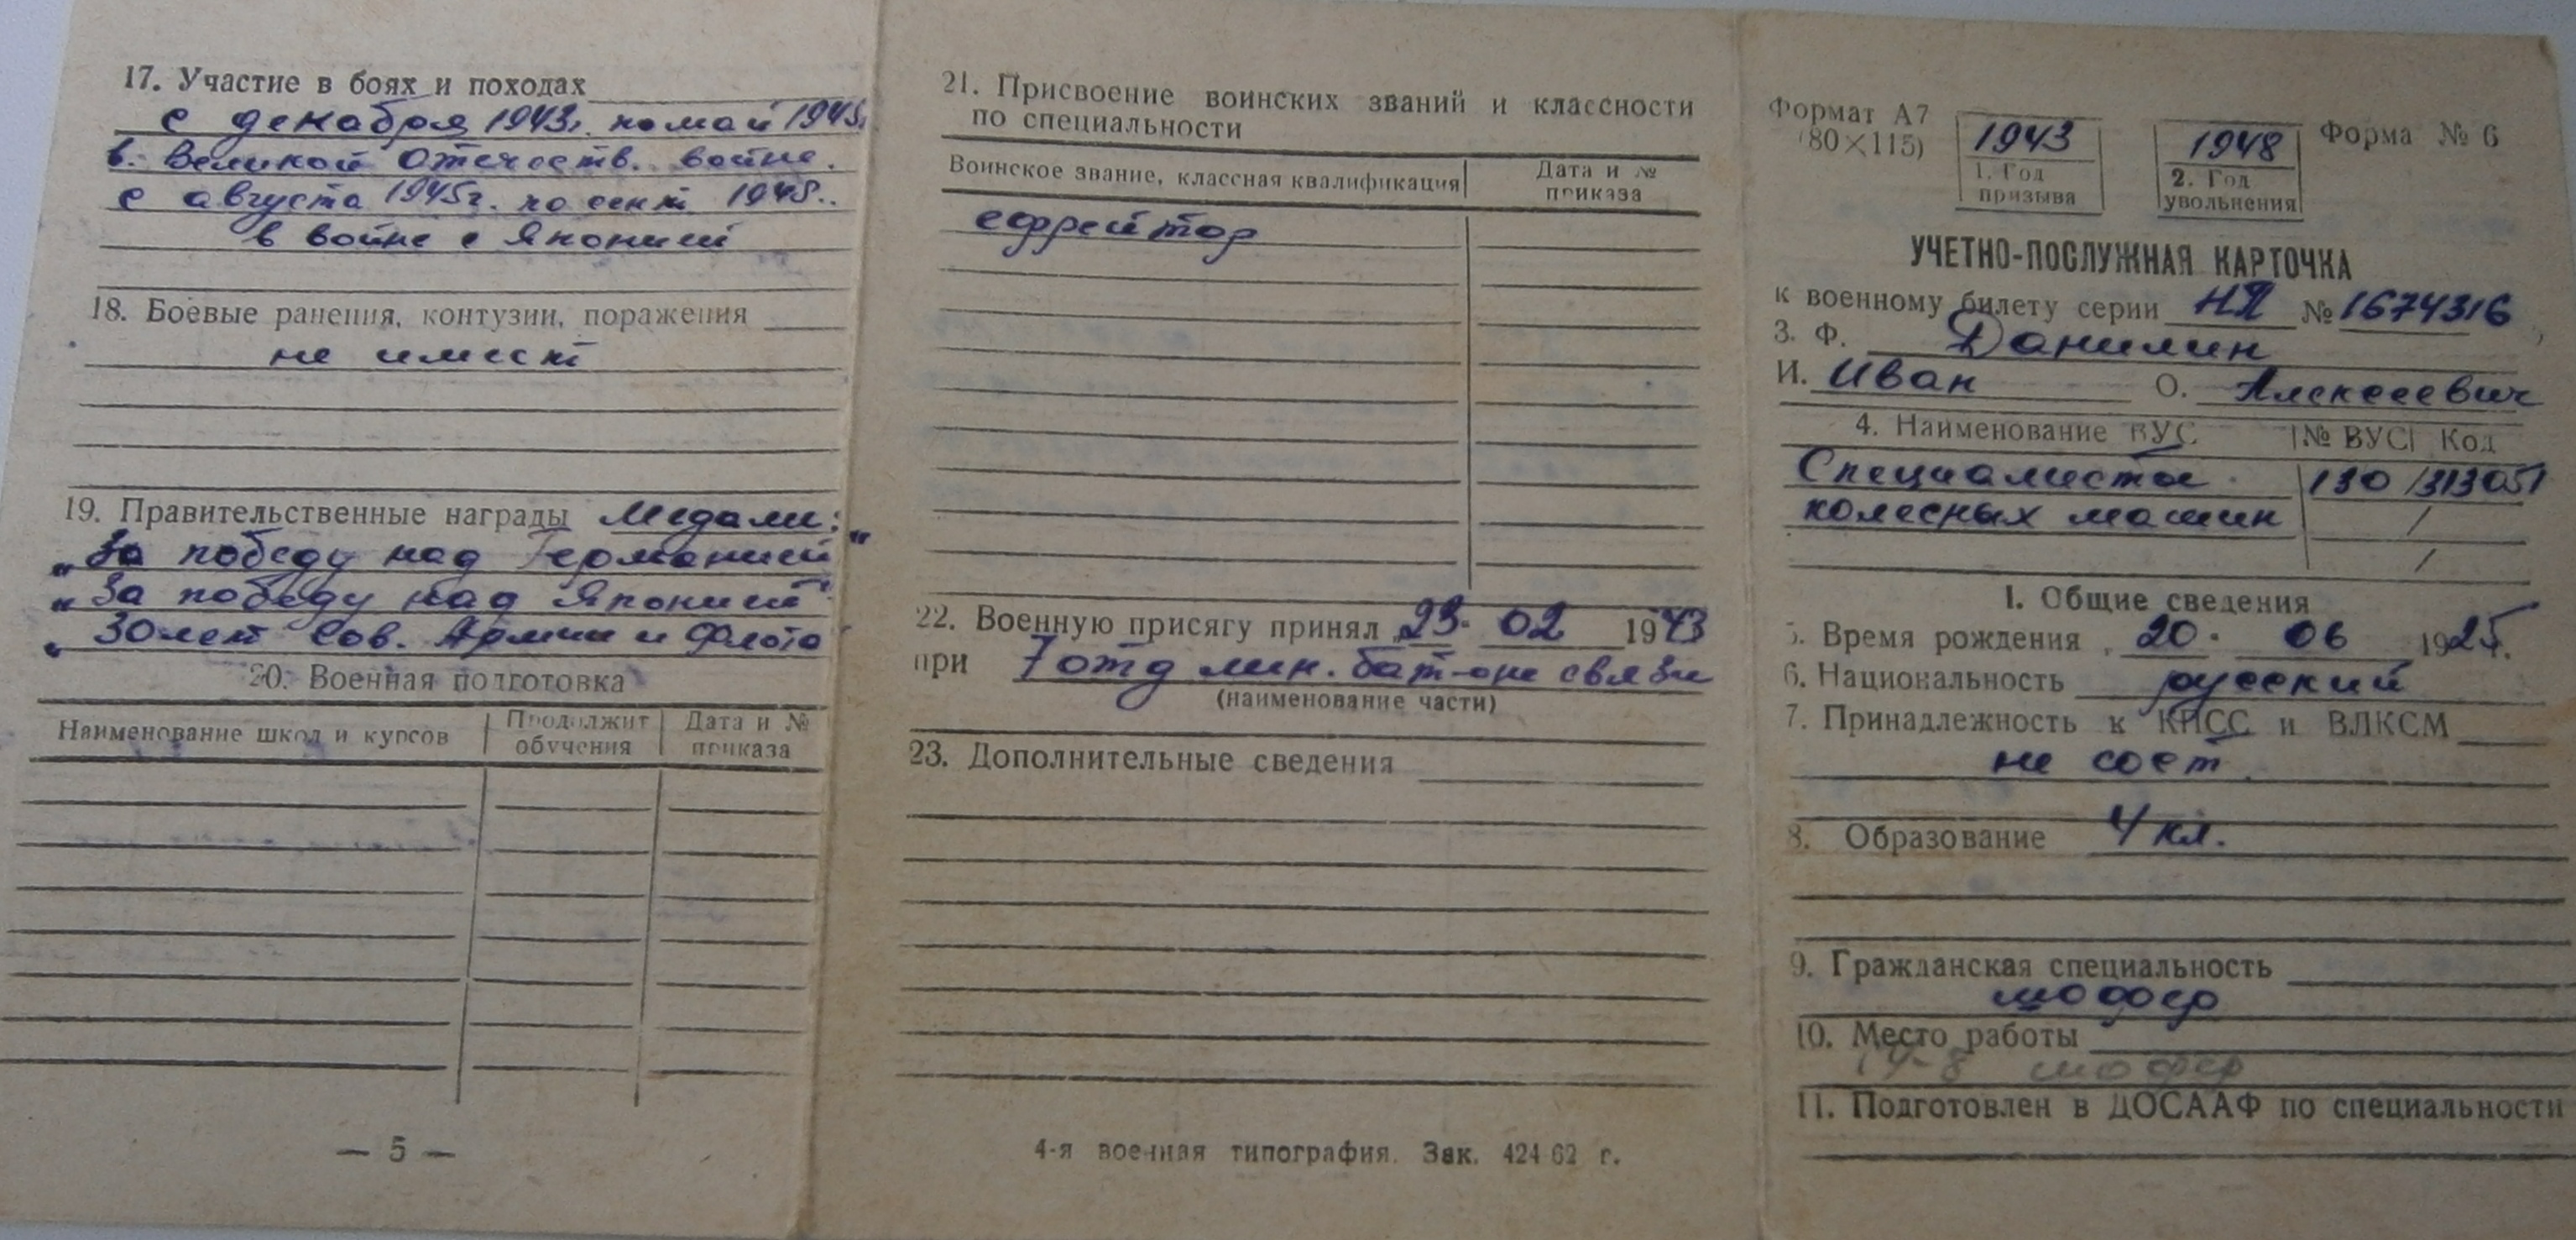 17. Участие в боях и походах
с декабря 1943г. по май 1945г
в. Великой Отечеств. войне.
с августа 1945г. по сент 1945..
в войне с Японией
18. Боевые ранения, контузии, поражения
не имеет
19. Правительственные награды Медали:
„За победу над Германией"
„За победу над Японией"
„30 лет Сов. Армии и Флота
20. Военная подготовка
Наименование школ и курсов
Продолжит обучения
Дата и № приказа
— 5 —
21. Присвоение воинских званий и классности
по специальности
Воинское звание, классная квалификация
Дата и № приказа
ефрейтор
22. Военную присягу принял 23. 02 1943
при 7 отд лин. бат-оне связи
(наименование части)
23. Дополнительные сведения
4-я военная типография. Зак. 424 62 г.
Формат А7
(80×115)
1943
1. Год
призыва
1948
2. Год
увольнения
Форма № 6
УЧЕТНО-ПОСЛУЖНАЯ КАРТОЧКА
к военному билету серии НЯ № 1674316
3. Ф. Данилин
И. Иван О. Алексеевич
4. Наименование ВУС № ВУС Код
Специалисты 130 /313051
колесных машин /
/
I. Общие сведения
5. Время рождения 20. 06 1925.
6. Национальность русский
7. Принадлежность к КПСС и ВЛКСМ
не сост.
8. Образование 4 кл.
9. Гражданская специальность
шофер
10. Место работы
шофер
11. Подготовлен в ДОСААФ по специальности